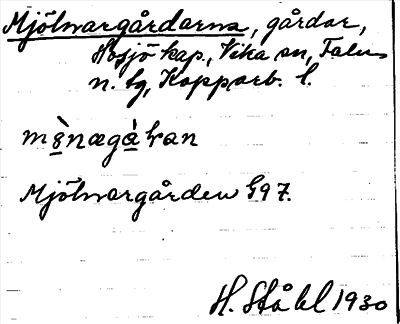 Mjölnargårdarna, gårdar,
Hosjö kap., Vika sn, Falun
n. tg, Kopparb. l.
Mjölnargården G97.
H. Ståhl 1930